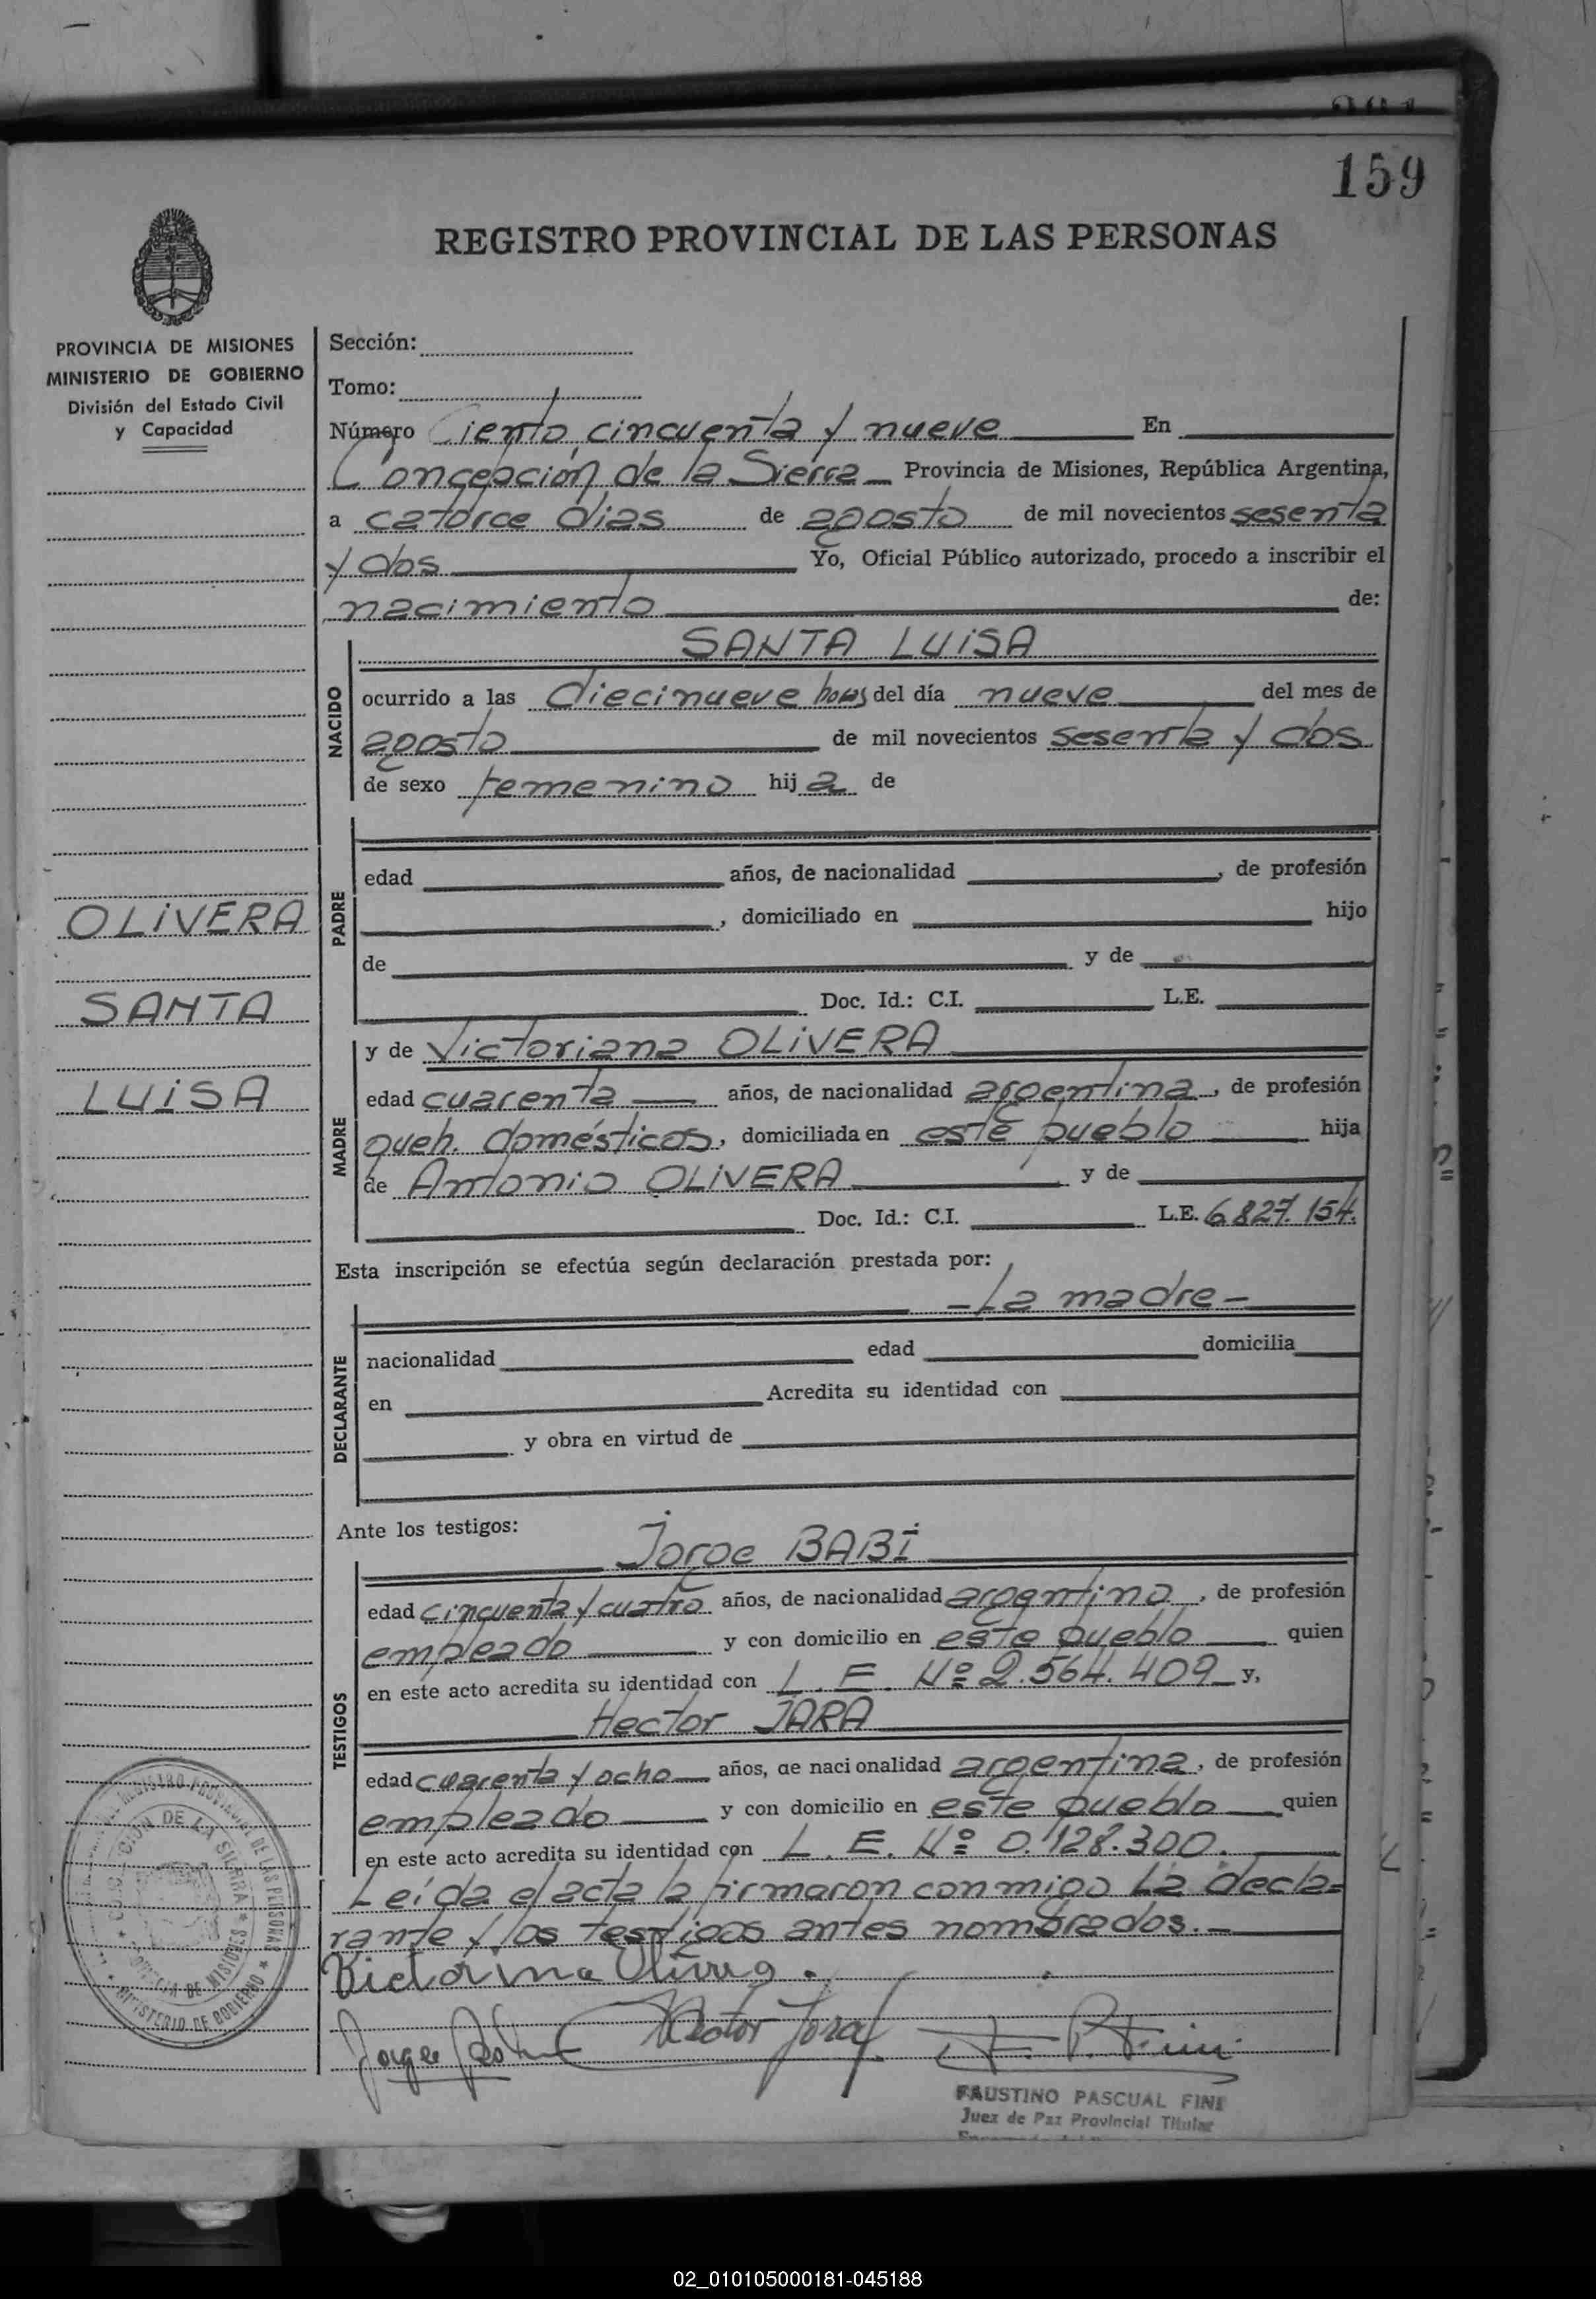 159
REGISTRO PROVINCIAL DE LAS PERSONAS
PROVINCIA DE MISIONES
MINISTERIO DE GOBIERNO
División del Estado Civil
y Capacidad
OLIVERA
SANTA
LUISA
Sección:
Tomo:
Número Ciento cincuenta y nueve En
Concepción de la Sierra Provincia de Misiones, República Argentina,
a catorce días de agosto de mil novecientos sesenta
y dos Yo, Oficial Público autorizado, procedo a inscribir el
nacimiento de:
SANTA LUISA
NACIDO
ocurrido a las diecinueve horas del día nueve del mes de
agosto de mil novecientos sesenta y dos
de sexo femenino hija de
PADRE
edad años, de nacionalidad , de profesión
, domiciliado en hijo
de y de
Doc. Id.: C.I. L.E.
MADRE
y de Victoriana OLIVERA
edad cuarenta años, de nacionalidad argentina, de profesión
queh. domésticos, domiciliada en este pueblo hija
de Antonio OLIVERA y de
Doc. Id.: C.I. L.E. 6.827.154.
Esta inscripción se efectúa según declaración prestada por:
- La madre -
DECLARANTE
nacionalidad edad domicilia
en Acredita su identidad con
y obra en virtud de
Ante los testigos:
Jorge BABI
TESTIGOS
edad cincuenta y cuatro años, de nacionalidad argentino, de profesión
empleado y con domicilio en este pueblo quien
en este acto acredita su identidad con L.E. Nº 2.564.409 y,
Hector JARA
edad cuarenta y ocho años, de nacionalidad argentina, de profesión
empleado y con domicilio en este pueblo quien
en este acto acredita su identidad con L.E. Nº 0.128.300.
Leída el acta la firmaron conmigo la decla-
rante y los testigos antes nombrados.-
Victorina Olivera.
Jorge Hector Jara F. P. Fini
FAUSTINO PASCUAL FINI
Juez de Paz Provincial Titular
DE LA SIERRA
MINISTERIO DE GOBIERNO
02_010105000181-045188